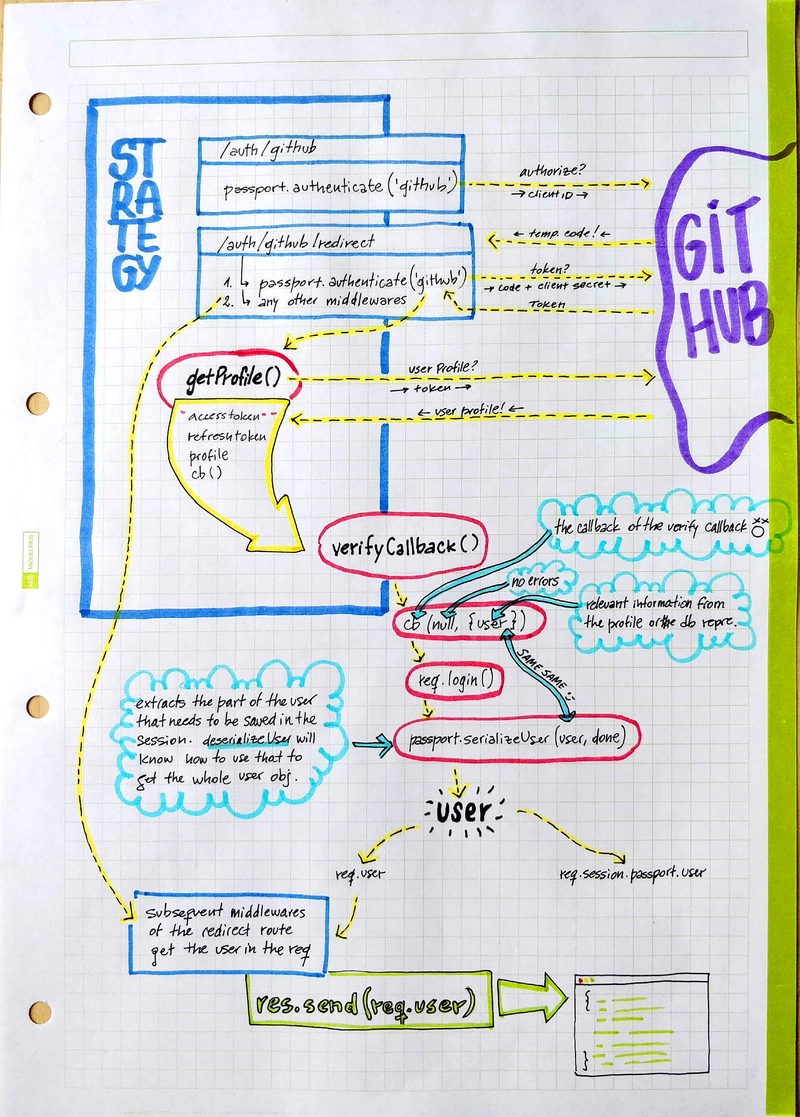 STRATEGY
/auth/github
passport.authenticate('github')
authorize?
→ client ID →
GITHUB
/auth/github/redirect
1. ↳ passport.authenticate('github')
2. ↳ any other middlewares
← temp. code! ←
token?
→ code + client secret →
Token
getProfile()
user Profile?
→ token →
← user profile! ←
accesstoken
refreshtoken
profile
cb()
verifyCallback()
the callback of the verify callback
no errors
cb (null, {user})
relevant information from
the profile or the db repre.
req.login()
SAME SAME
passport.serializeUser (user, done)
extracts the part of the user
that needs to be saved in the
session. deserializeUser will
know how to use that to
get the whole user obj.
user
req.user
req.session.passport.user
subsequent middlewares
of the redirect route
get the user in the req
res.send(req.user)
{
}
MIQUELRIUS